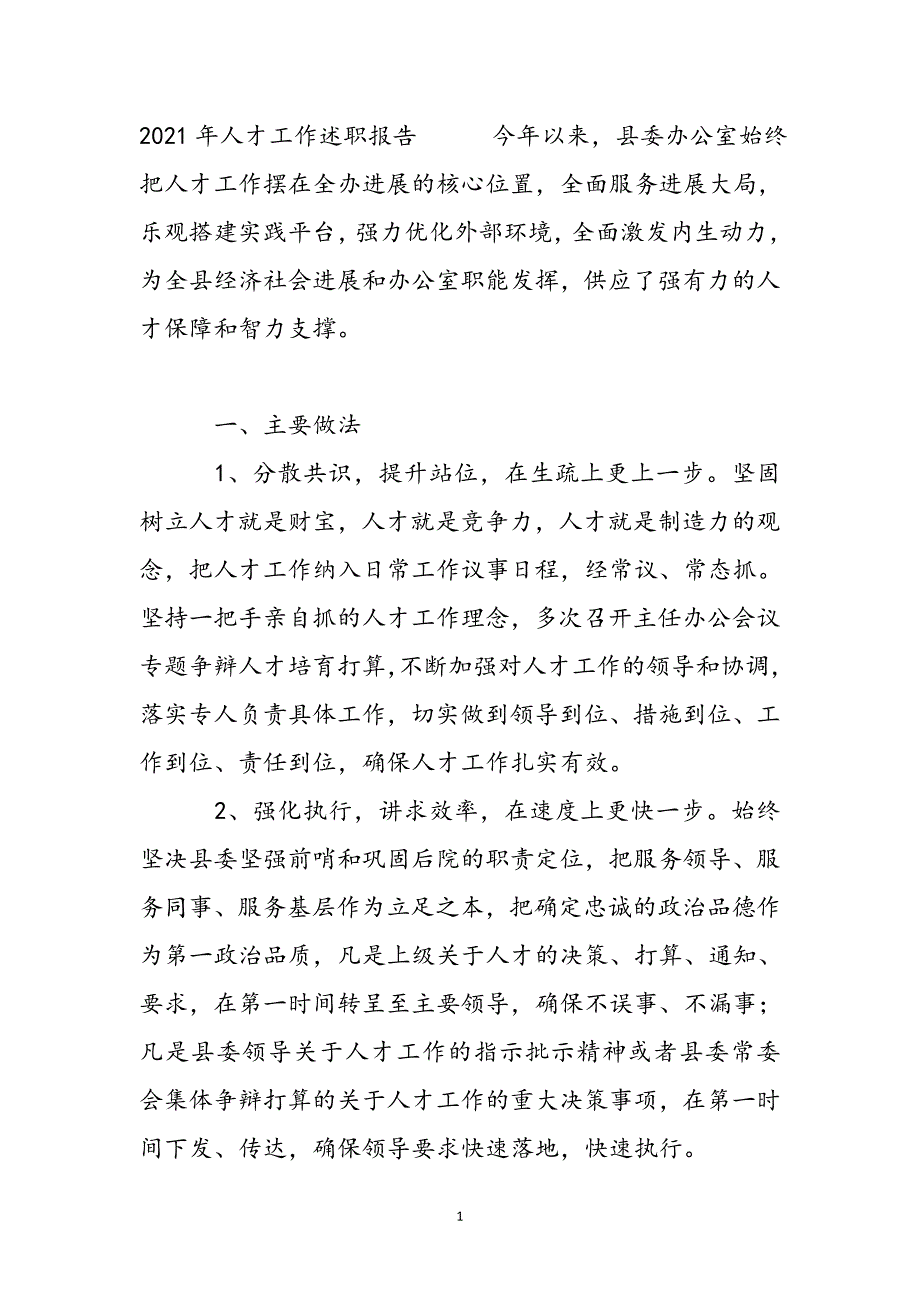 2021 年人才工作述职报告 今年以来，县委办公室始终
把人才工作摆在全办进展的核心位置，全面服务进展大局，
乐观搭建实践平台，强力优化外部环境，全面激发内生动力，
为全县经济社会进展和办公室职能发挥，供应了强有力的人
才保障和智力支撑。
一、主要做法
1、分散共识，提升站位，在生疏上更上一步。坚固
树立人才就是财宝，人才就是竞争力，人才就是制造力的观
念，把人才工作纳入日常工作议事日程，经常议、常态抓。
坚持一把手亲自抓的人才工作理念，多次召开主任办公会议
专题争辩人才培育打算，不断加强对人才工作的领导和协调，
落实专人负责具体工作，切实做到领导到位、措施到位、工
作到位、责任到位，确保人才工作扎实有效。
2、强化执行，讲求效率，在速度上更快一步。始终
坚决县委坚强前哨和巩固后院的职责定位，把服务领导、服
务同事、服务基层作为立足之本，把确定忠诚的政治品德作
为第一政治品质，凡是上级关于人才的决策、打算、通知、
要求，在第一时间转呈至主要领导，确保不误事、不漏事；
凡是县委领导关于人才工作的指示批示精神或者县委常委
会集体争辩打算的关于人才工作的重大决策事项，在第一时
间下发、传达，确保领导要求快速落地，快速执行。
1